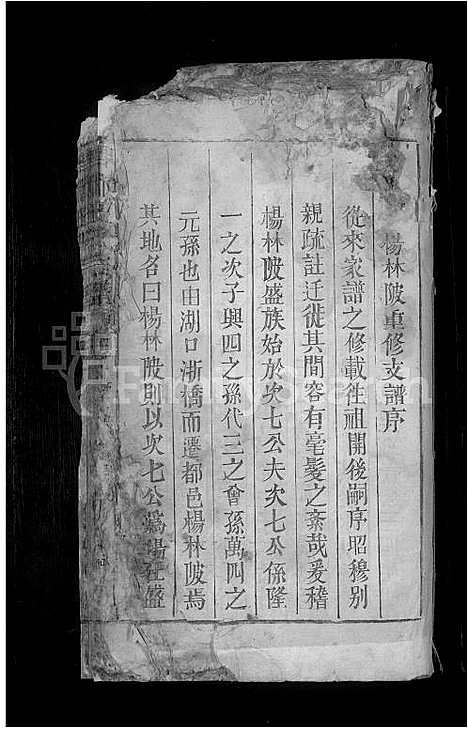 楊林陂重修支譜序
從來家譜之修載徃祖開後嗣序昭穆别
親疏註迁徙其間容有毫髮之紊哉爰稽
楊林陂盛族始於次七公夫次七公係隆
一之次子興四之孫代三之會孫萬四之
元孫也由湖口浙橋而遷都邑楊林陂焉
其地名曰楊林陂則以次七公為楊林盛